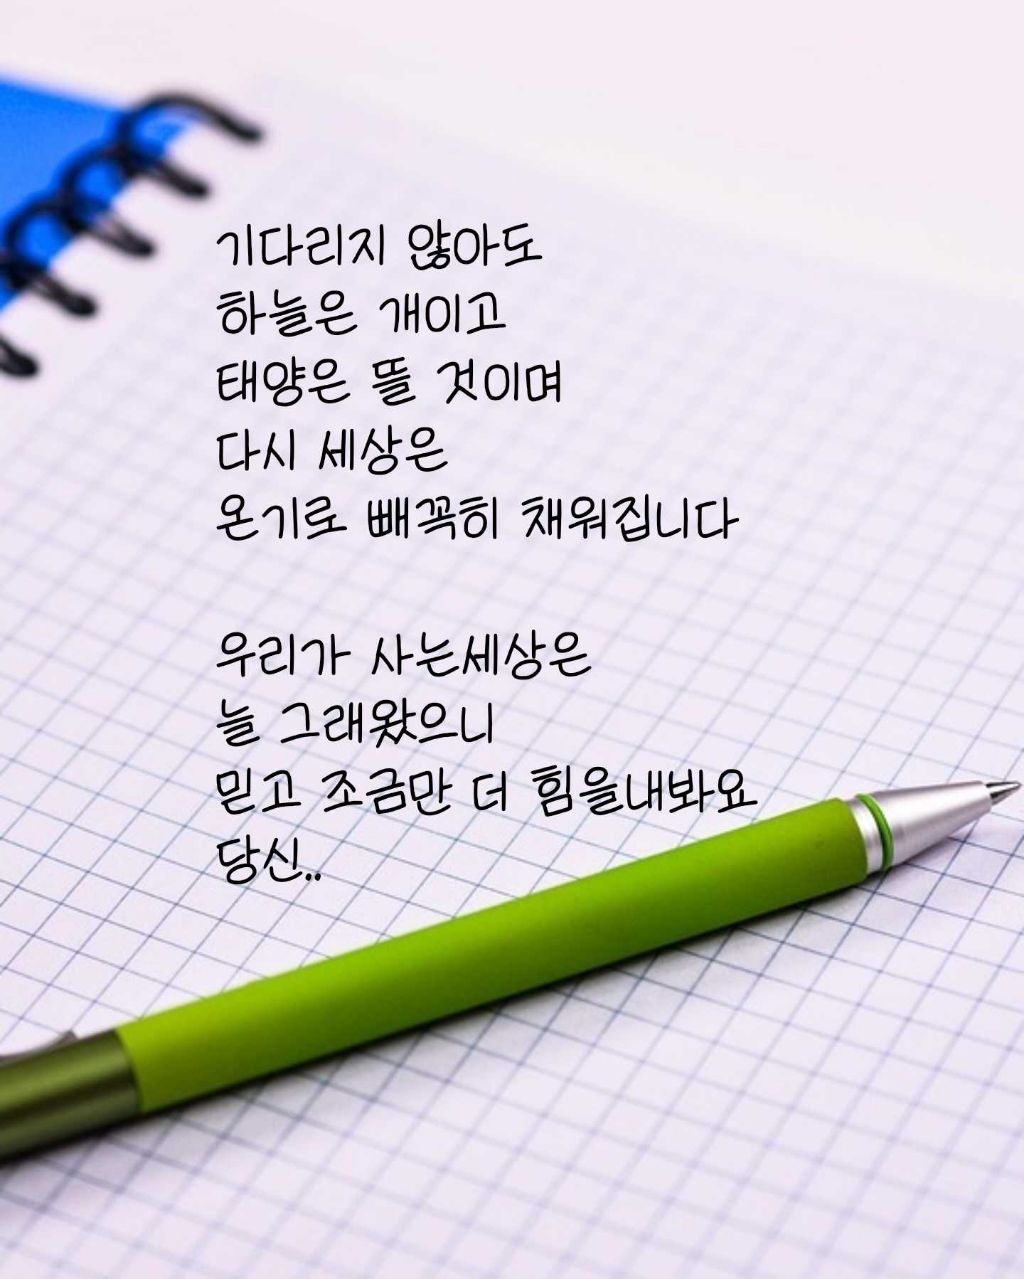 기다리지 않아도
하늘은 개이고
태양은 뜰 것이며
다시 세상은
온기로 빼꼭히 채워집니다
우리가 사는세상은
늘 그래왔으니
믿고 조금만 더 힘을내봐요
당신..